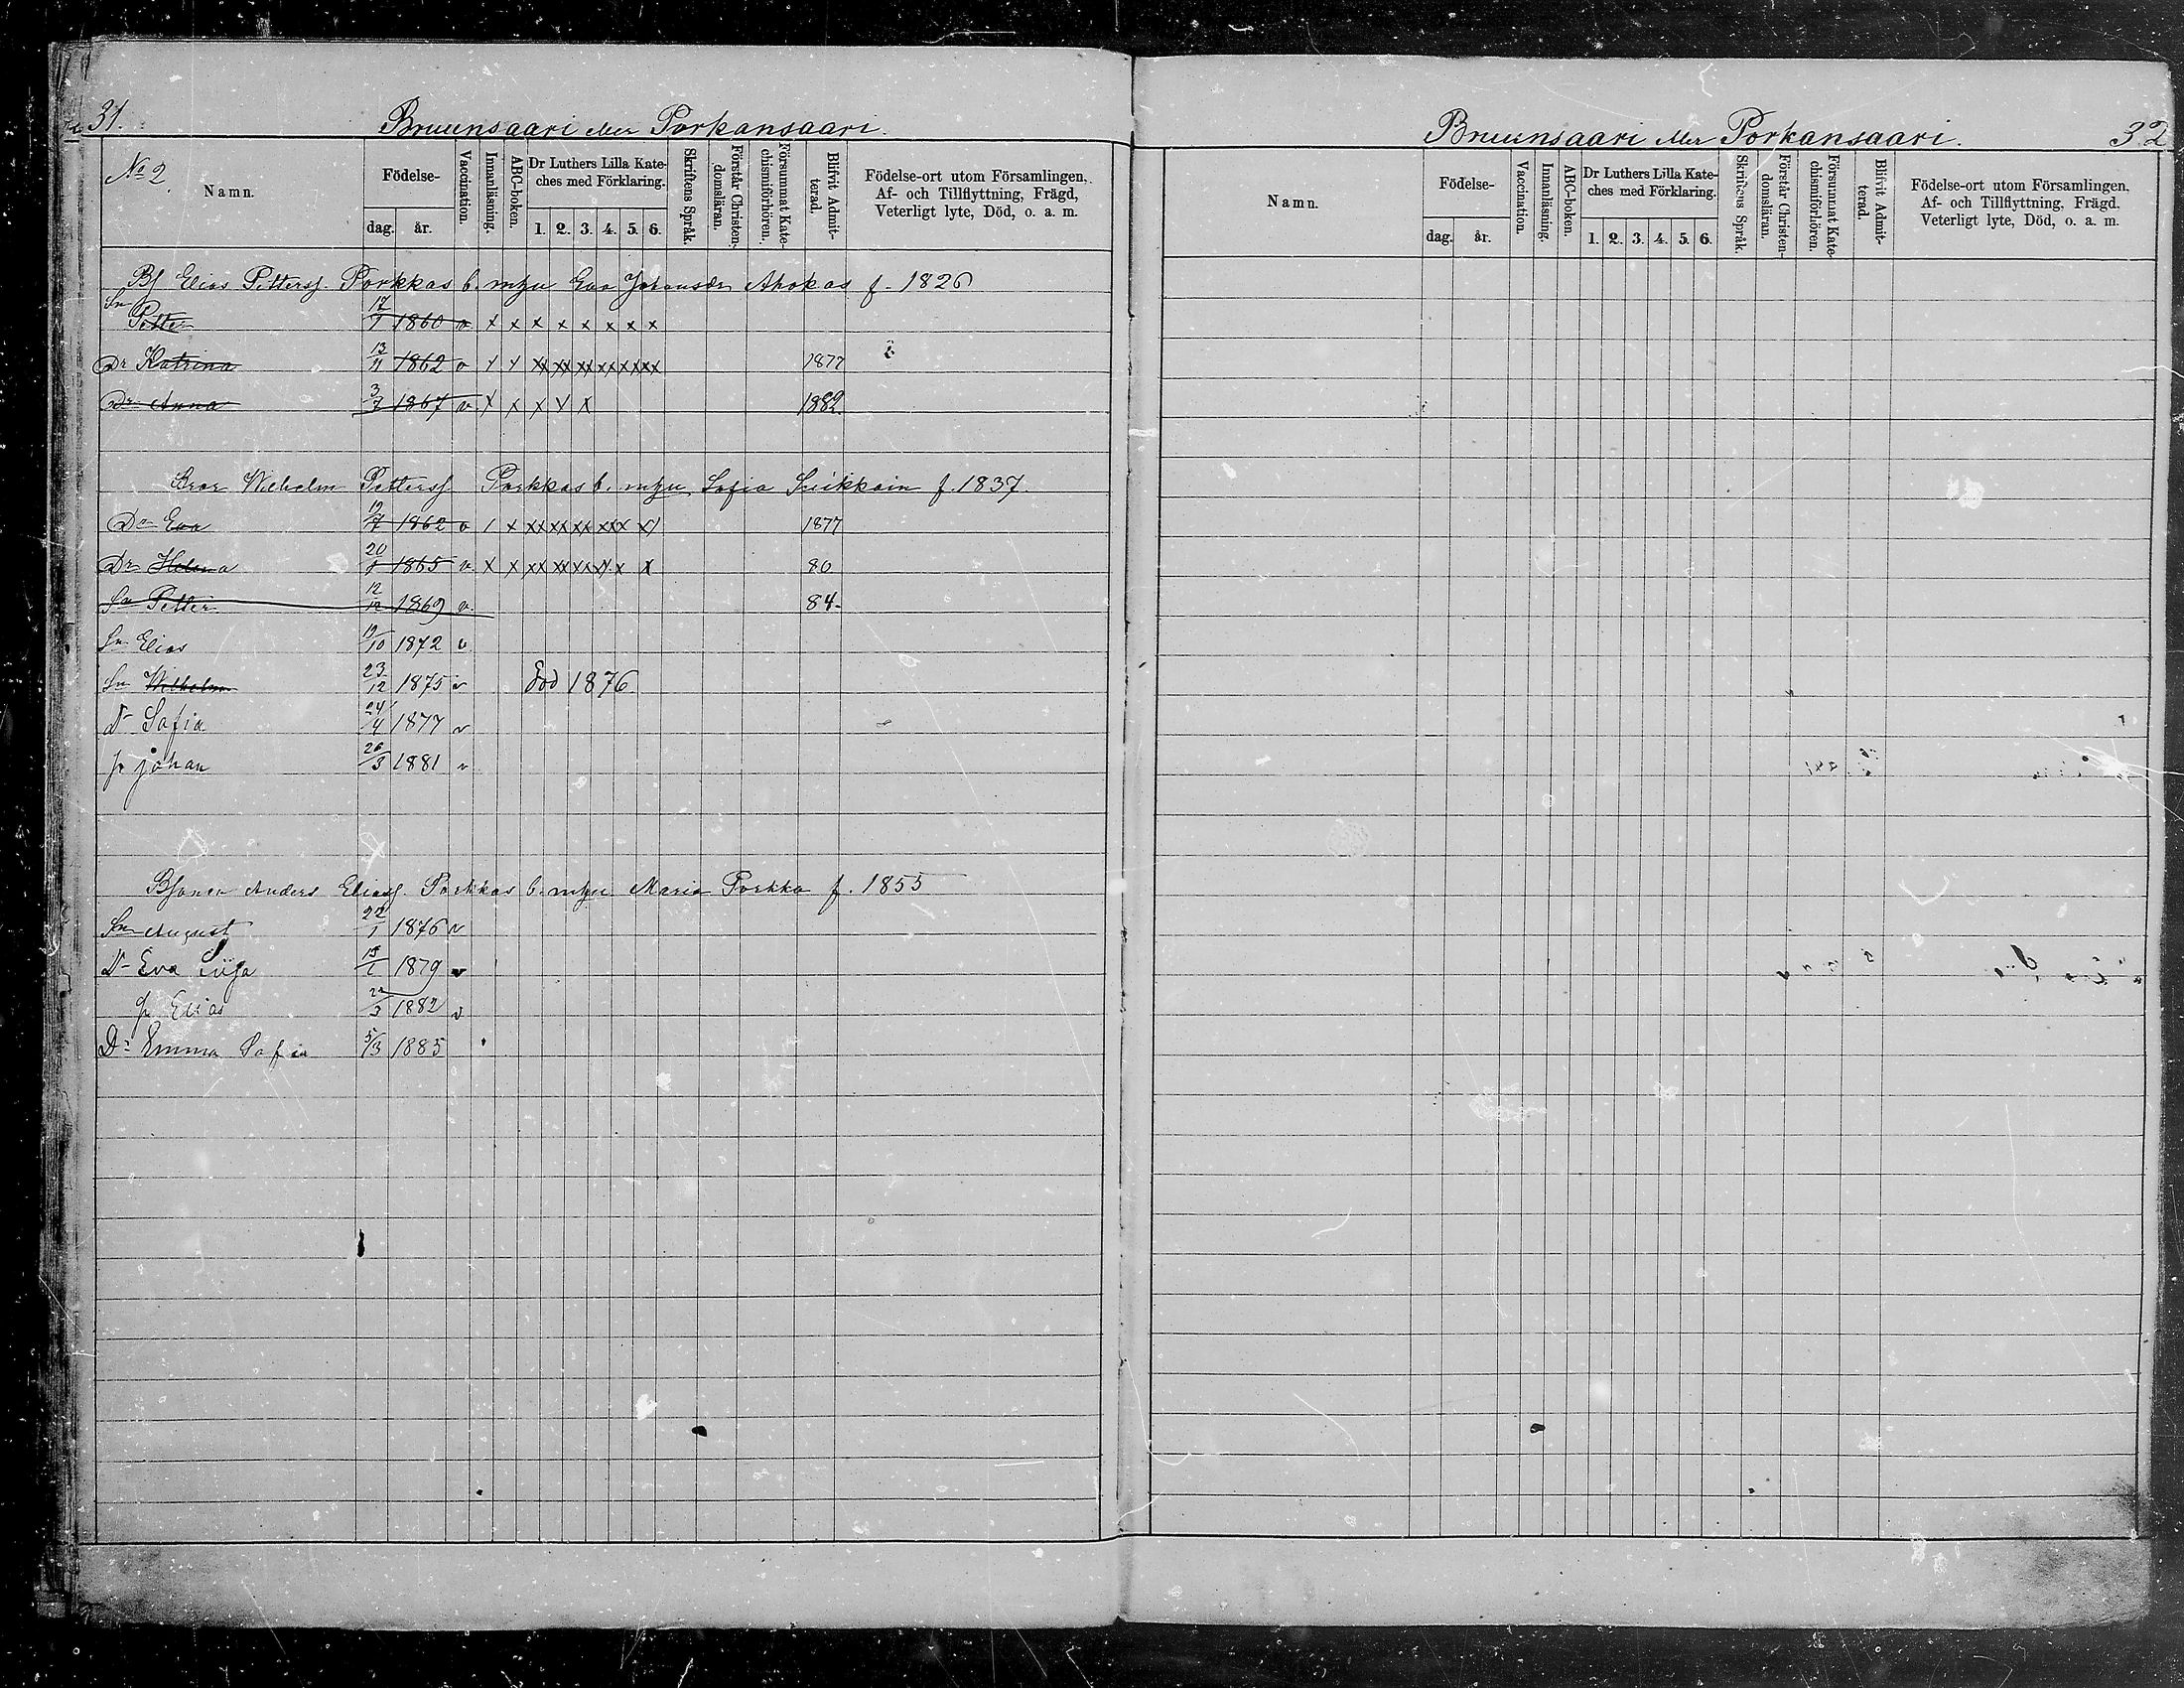 31.
Bruunsaari eller Porkansaari.
No 2.
Namn.
Födelse-
dag.
år.
Vaccination.
Innanläsning.
ABC-boken.
Dr Luthers Lilla Kate-
ches med Förklaring.
1. 2. 3. 4. 5. 6.
Skriftens Språk.
Förstår Christen-
domsläran.
Försummat Kate-
chismiförhören.
Blifvit Admit-
terad.
Födelse-ort utom Församlingen,
Af- och Tillflyttning, Frägd,
Veterligt lyte, Död, o. a. m.
Elias Petterss. Porkkas b. Eva Johansdr Ahokas f. 1826
Sn Petter 17/7 1860 v x x x x x x x x
Dr Katrina 13/11 1862 v x x xx xx xx xx xx xx 1877
Dr Anna 3/7 1867 v x x x x x 1882
Wilhelm Petterss. Porkkas b. Sofia Seikkain f. 1837.
Dr Eva 19/7 1862 v / x xx xx xx xx x x/ 1877
Dr Helena 20/7 1865 v x x xx xx xx x x 80
Sn Petter 12/12 1869 v 84.
Sn Elias 19/10 1872 v
Sn Wilhelm 23/12 1875 v död 1876
Dr Sofia 24/4 1877 v
johan 26/3 1881 v
Anders Eliass. Porkkas b. Maria Porkka f. 1855
Sn August 22/1 1876 v
Dr Eva 1879 v
Elias 1882 v
Dr Emma Sofia 5/3 1885
Bruunsaari eller Porkansaari.
32
Namn.
Födelse-
dag.
år.
Vaccination.
Innanläsning.
ABC-boken.
Dr Luthers Lilla Kate-
ches med Förklaring.
1. 2. 3. 4. 5. 6.
Skriftens Språk.
Förstår Christen-
domsläran.
Försummat Kate-
chismiförhören.
Blifvit Admit-
terad.
Födelse-ort utom Församlingen,
Af- och Tillflyttning, Frägd.
Veterligt lyte, Död, o. a. m.